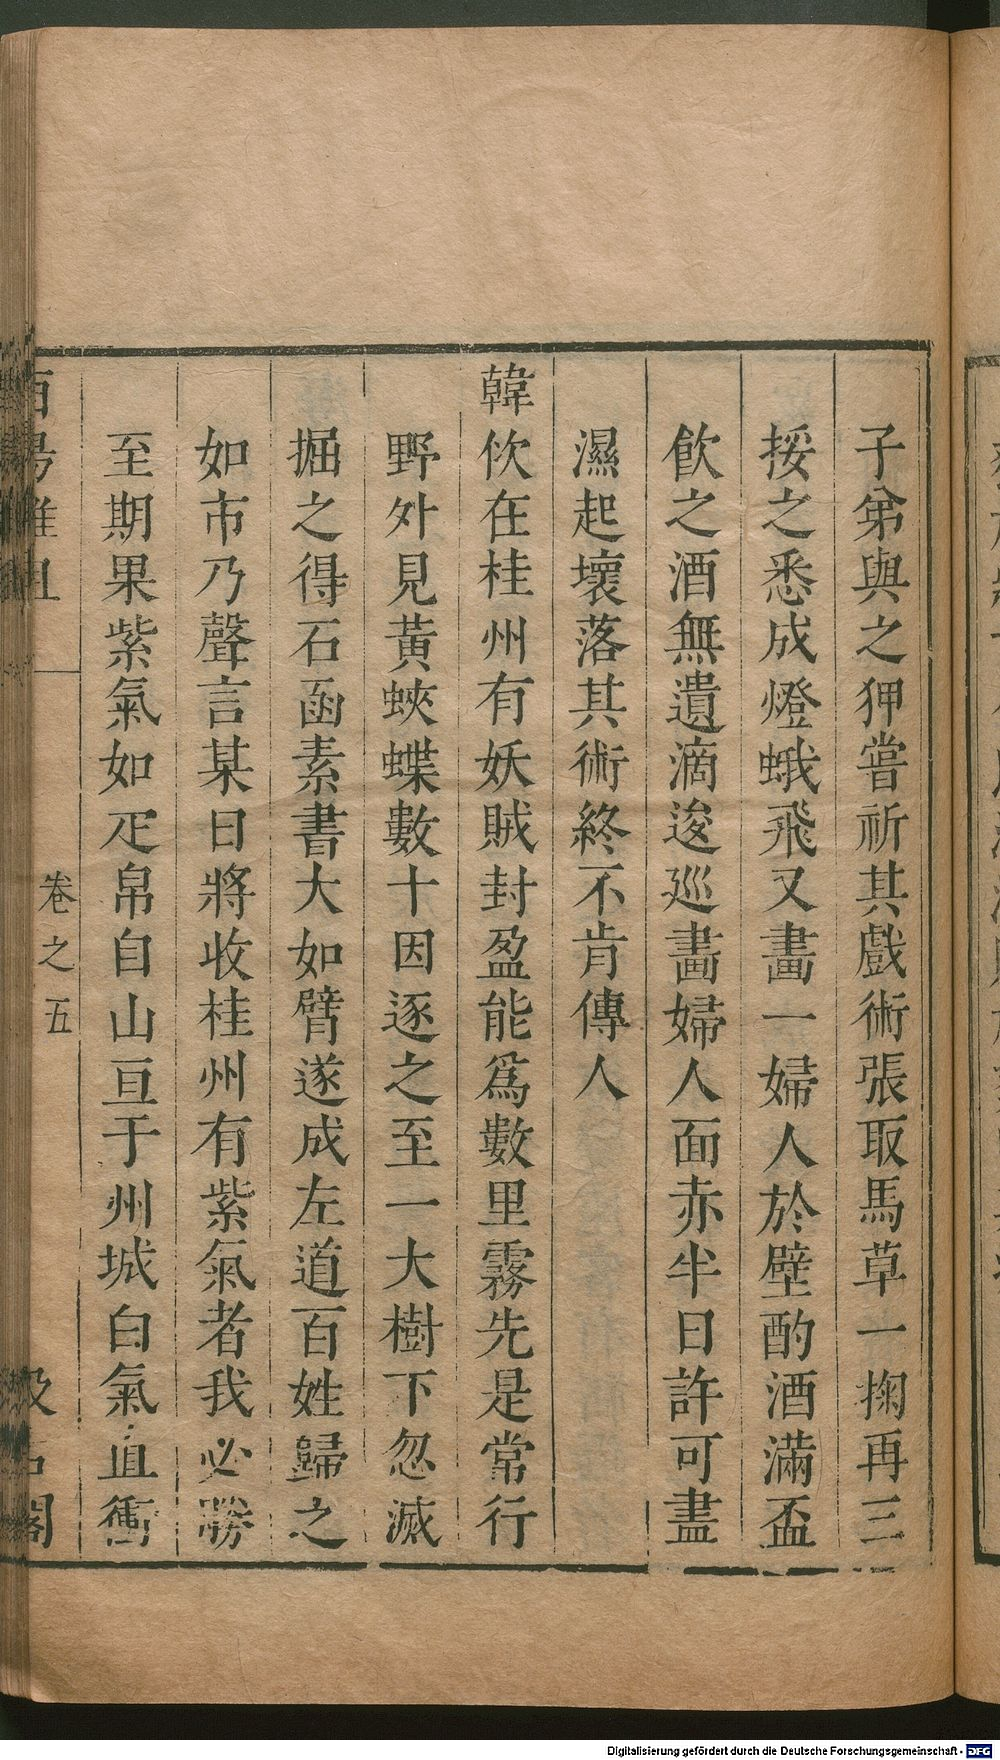 子弟與之狎嘗祈其戲術張取馬草一掬再三
挼之悉成燈蛾飛又畫一婦人於壁酌酒滿盃
飲之酒無遺滴逡巡畫婦人面赤半日許可盡
濕起壞落其術終不肯傳人
韓佽在桂州有妖賊封盈能爲數里霧先是常行
野外見黃蛺蝶數十因逐之至一大樹下忽滅
掘之得石函素書大如臂遂成左道百姓歸之
如市乃聲言某日將收桂州有紫氣者我必勝
至期果紫氣如疋帛自山亘于州城白氣直衝
酉陽雜俎
卷之五
汲古閣
Digitalisierung gefördert durch die Deutsche Forschungsgemeinschaft - DFG